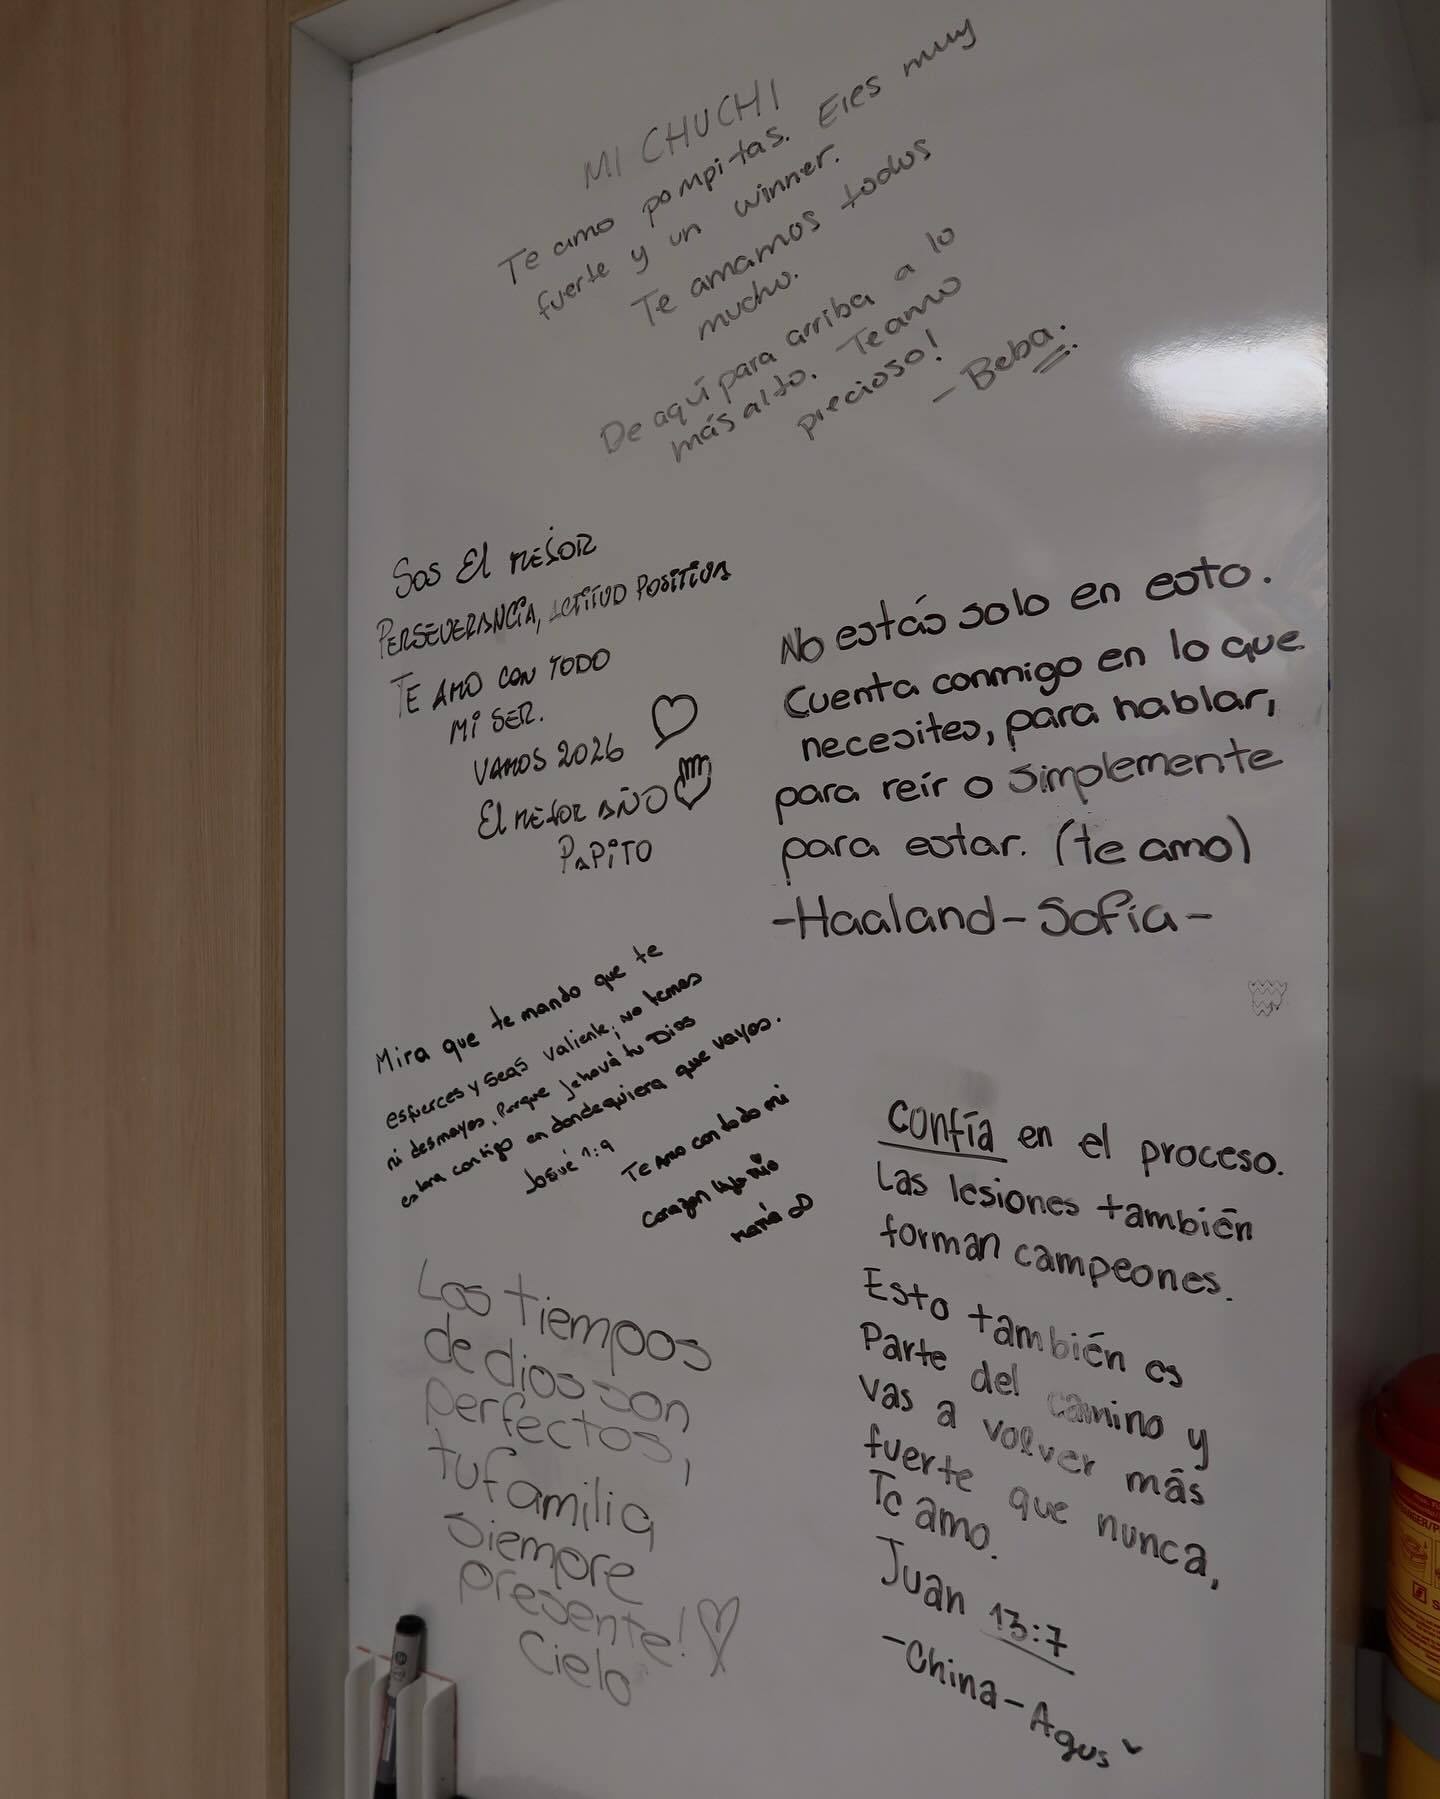 MI CHUCHI
Te amo pompitas. Eres muy
fuerte y un winner.
Te amamos todos
mucho.
De aquí para arriba a lo
más alto. Te amo
precioso!
- Beba.
Sos El MEJOR
PERSEVERANCIA, ACTITUD POSITIVA
TE AMO CON TODO
MI SER.
VAMOS 2026
El MEJOR AÑO
PAPITO
No estás solo en esto.
Cuenta conmigo en lo que
necesites, para hablar,
para reír o simplemente
para estar. (te amo)
-Haaland-Sofía-
Mira que te mando que te
esfuerces y seas valiente; no temas
ni desmayes, Porque Jehová tu Dios
estara contigo en dondequiera que vayas.
Josué 1:9
Te Amo con todo mi
corazon hijo mio
Mamá
Los tiempos
de dios son
perfectos,
tu familia
siempre
presente!
Cielo
Confía en el proceso.
Las lesiones también
forman campeones.
Esto también es
Parte del camino y
vas a volver más
fuerte que nunca,
Te amo.
Juan 13:7
-China-Agus